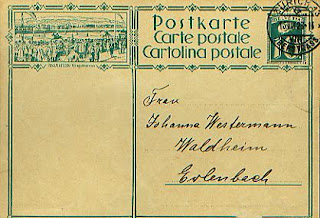 Postkarte
Carte postale
Cartolina postale
Frau
Johanna Westermann
Waldheim
Erlenbach